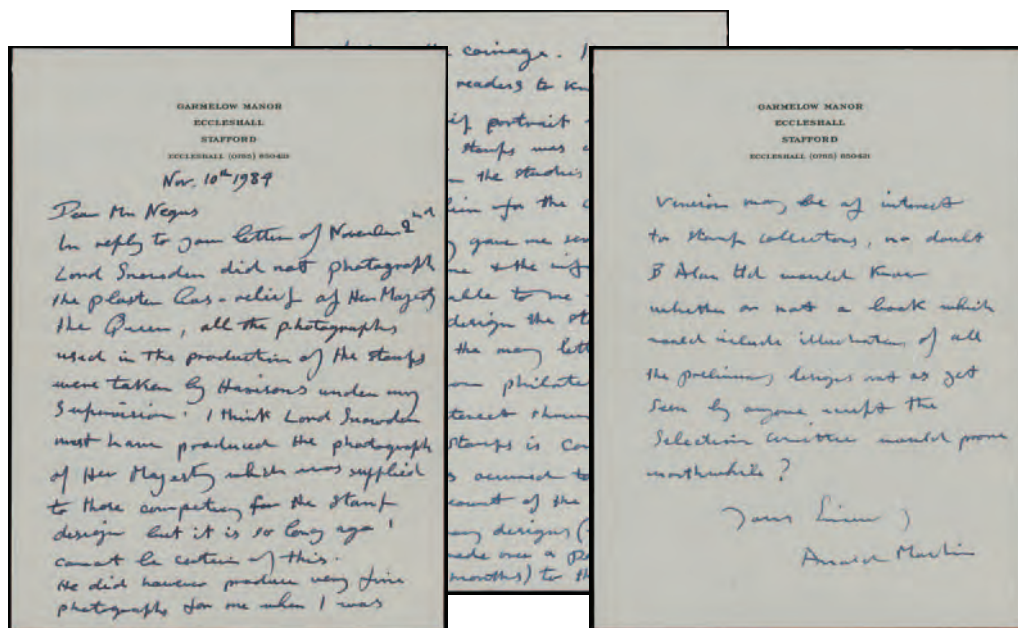 GARMELOW MANOR
ECCLESHALL
STAFFORD
ECCLESHALL (0785) 850431
Nov. 10th 1984
Dear Mr Negus
In reply to your letter of November 2nd
Lord Snowdon did not photograph
the plaster bas-relief of Her Majesty
the Queen, all the photographs
used in the production of the stamps
were taken by Harrisons under my
Supervision. I think Lord Snowdon
must have produced the photograph
of Her Majesty which was supplied
to those competing for the Stamp
design but it is so long ago I
cannot be certain of this.
He did however produce very fine
photographs for me when I was
the coinage.
readers to
portrait
stamps was
the studies
for the
gave me
me & the
able to me
design the
the many
philate
terest shown
Stamps is
occurred to
count of the
designs
made over a
months) to
GARMELOW MANOR
ECCLESHALL
STAFFORD
ECCLESHALL (0785) 850431
Venison may be of interest
to Stamp collectors, no doubt
B Alan Ltd would know
whether or not a book which
would include illustrations of all
the preliminary designs not as yet
Seen by anyone except the
Selection Committee would prove
worthwhile?
Yours Sincerely
Arnold Machin